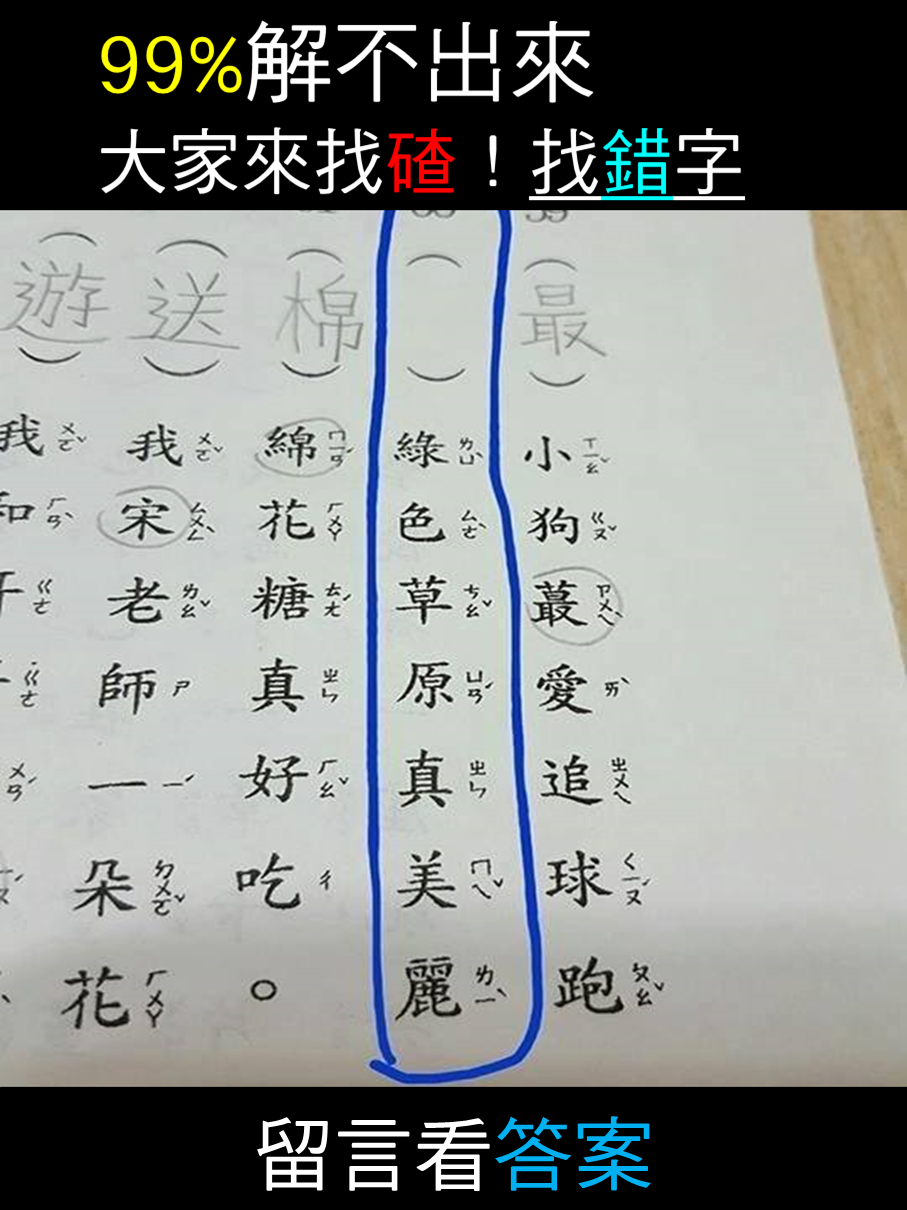 99%解不出來
大家來找碴！找錯字
(最)
小ㄒㄧㄠˇ狗ㄍㄡˇ蕞ㄗㄨㄟˋ愛ㄞˋ追ㄓㄨㄟ球ㄑㄧㄡˊ跑ㄆㄠˇ
( )
綠ㄌㄩˋ色ㄙㄜˋ草ㄘㄠˇ原ㄩㄢˊ真ㄓㄣ美ㄇㄟˇ麗ㄌㄧˋ
(棉)
綿ㄇㄧㄢˊ花ㄏㄨㄚ糖ㄊㄤˊ真ㄓㄣ好ㄏㄠˇ吃ㄔ。
(送)
我ㄨㄛˇ宋ㄙㄨㄥˋ老ㄌㄠˇ師ㄕ一ㄧˊ朵ㄉㄨㄛˇ花ㄏㄨㄚ
(遊)
我ㄨㄛˇ和ㄏㄢˋ
留言看答案